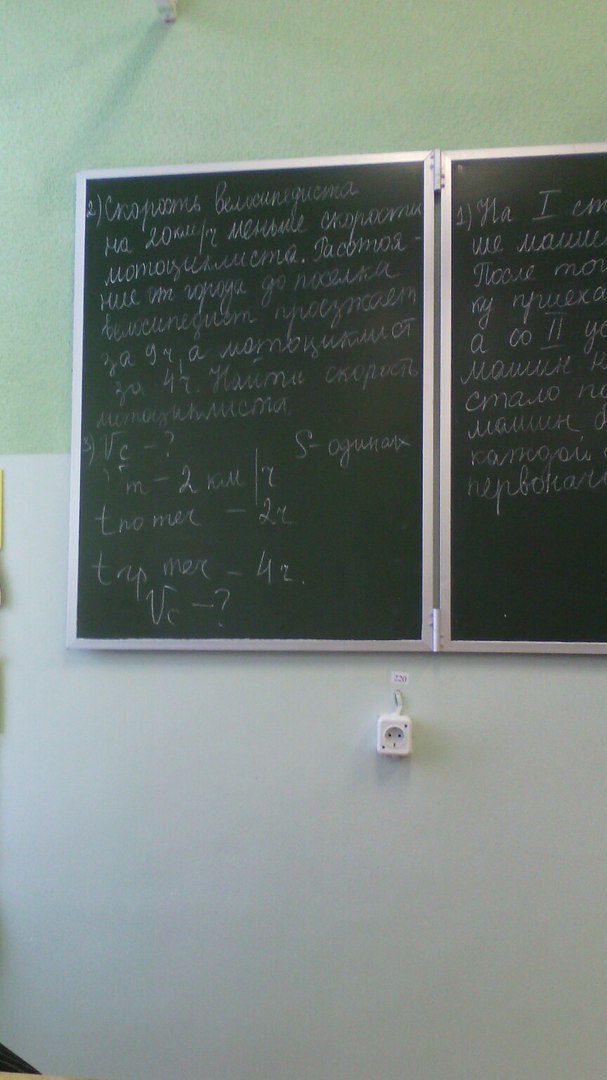 2) Скорость велосипедиста
на 20 км/ч меньше скорости
мотоциклиста. Расстоя-
ние от города до посёлка
велосипедист проезжает
за 9ч, а мотоциклист
за 4ч. Найти скорость
мотоциклиста
3) Vс - ?
S - одинак
Vт - 2 км/ч
t по теч - 2ч
t пр теч - 4ч.
Vс - ?
1) На I ст
ше маши
После тог
ку приеха
а со II уе
машин н
стало по
машин б
каждой
первонача
220